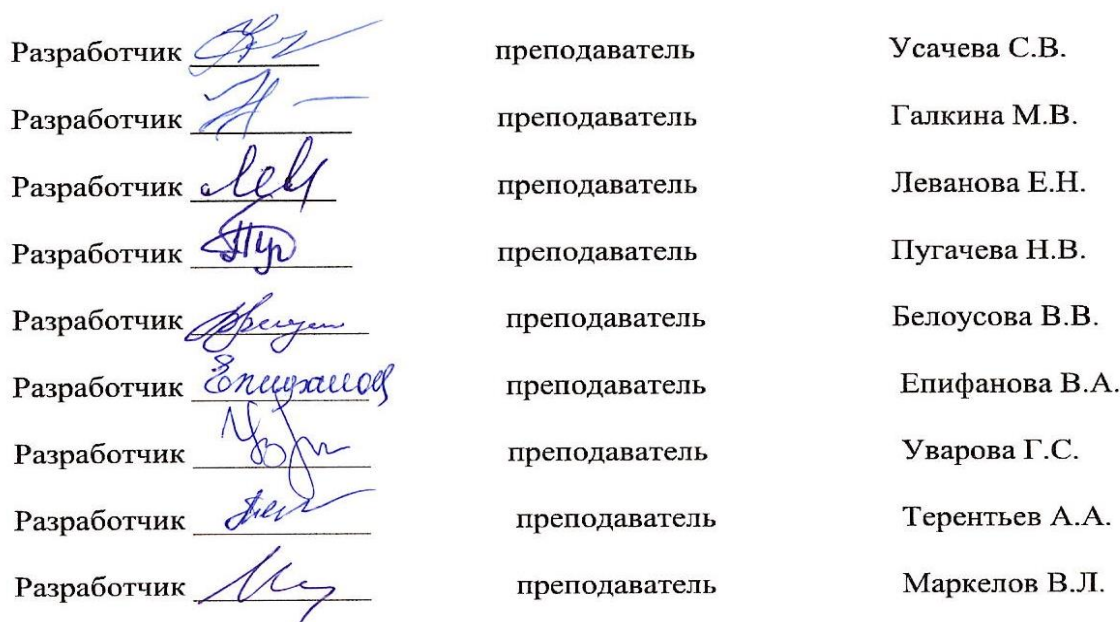 Разработчик преподаватель Усачева С.В.
Разработчик преподаватель Галкина М.В.
Разработчик преподаватель Леванова Е.Н.
Разработчик преподаватель Пугачева Н.В.
Разработчик преподаватель Белоусова В.В.
Разработчик преподаватель Епифанова В.А.
Разработчик преподаватель Уварова Г.С.
Разработчик преподаватель Терентьев А.А.
Разработчик преподаватель Маркелов В.Л.